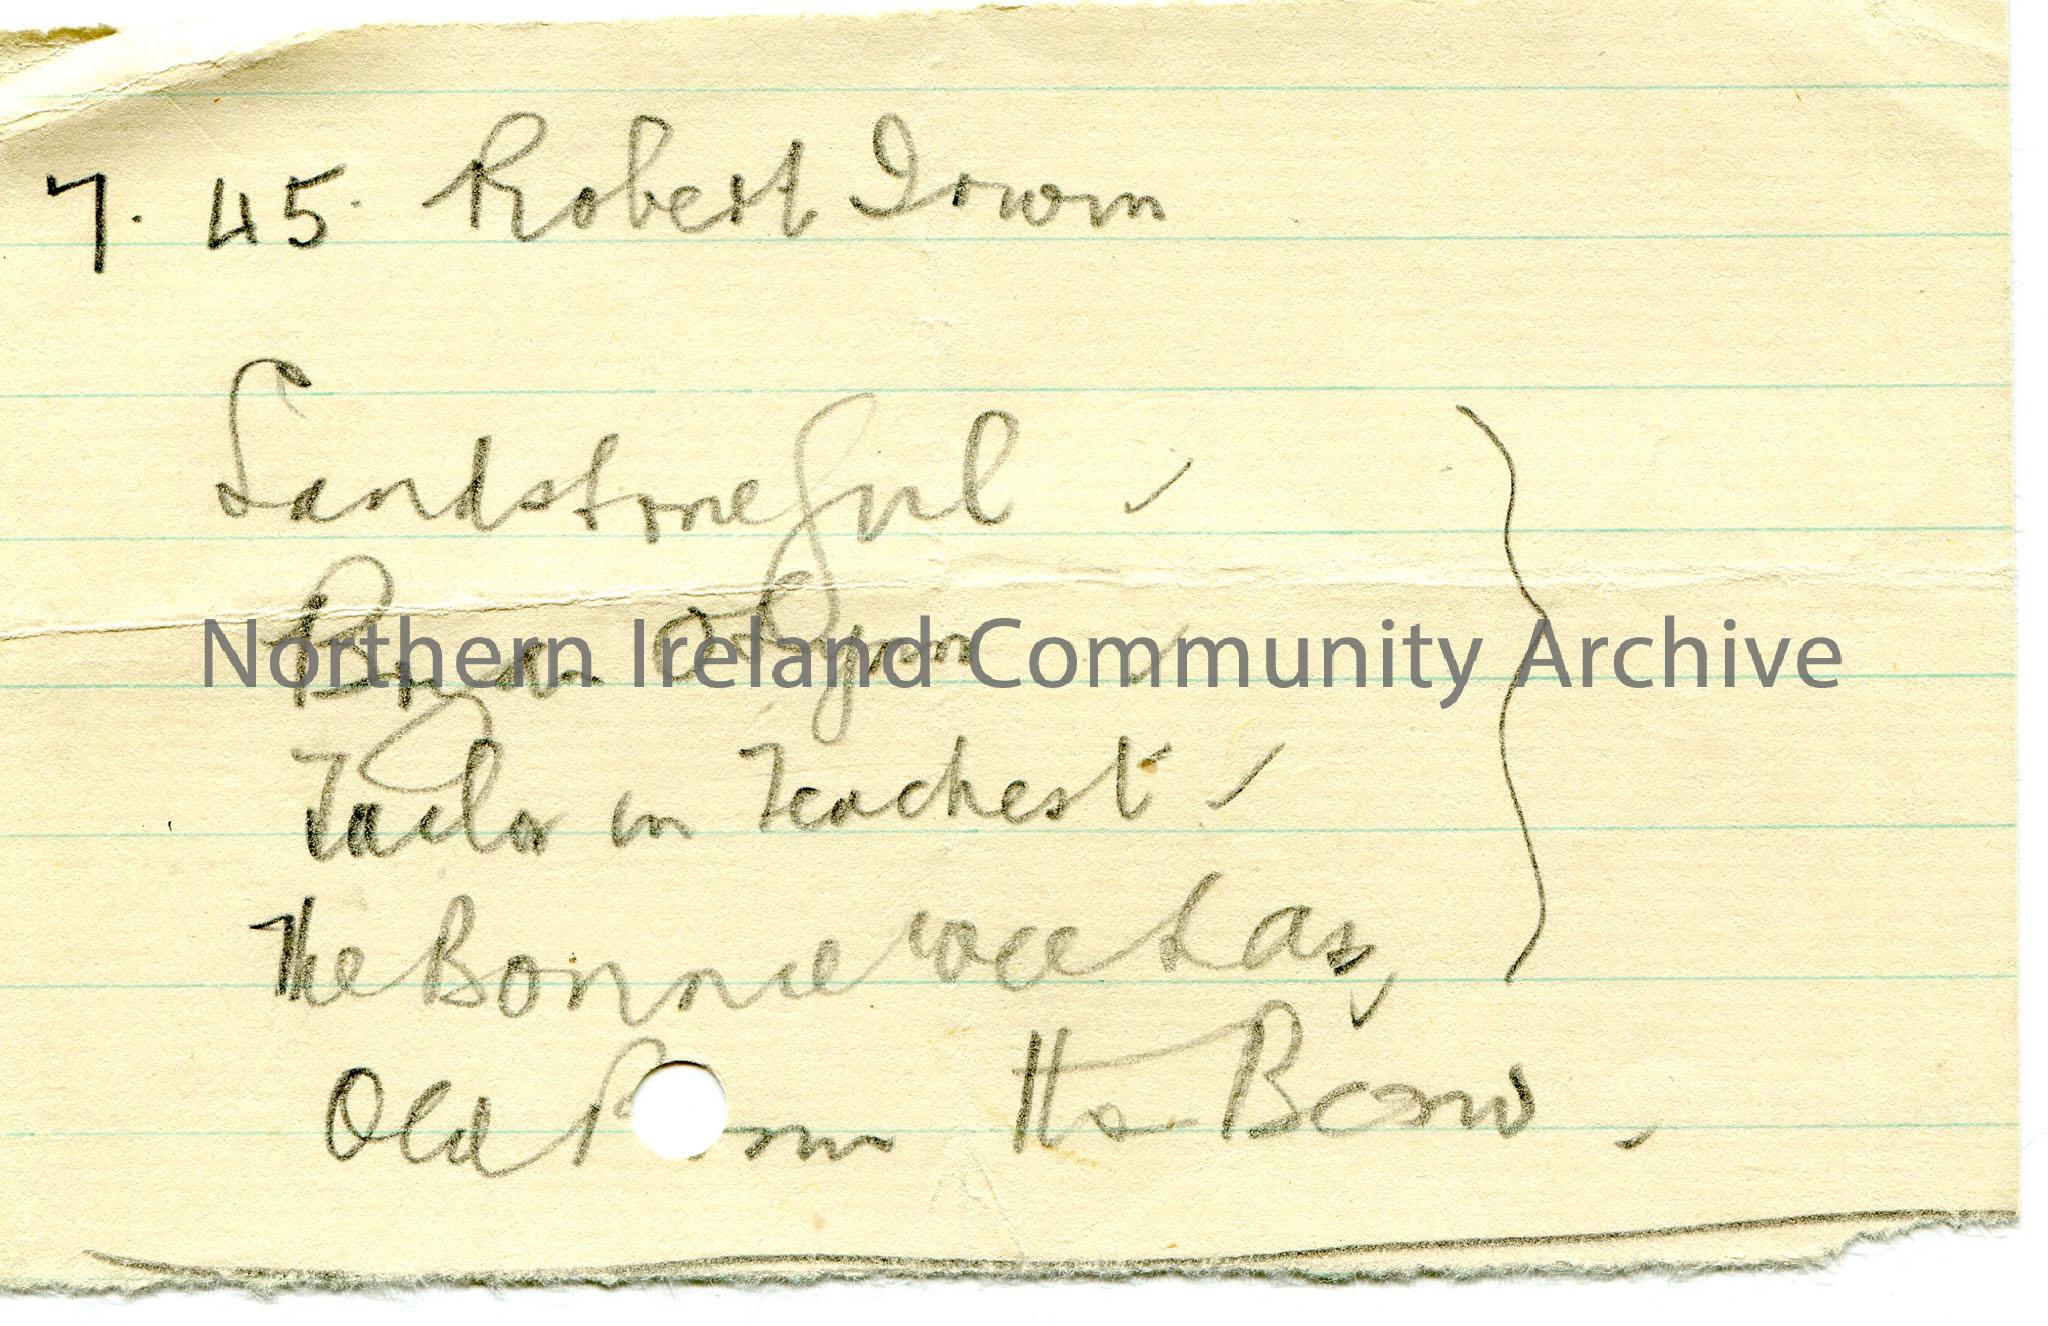 7. 45. Robert Irwin
Sandstone Girl ✓
Northern Ireland Community Archive
Brian O'Lynn ✓
Tailor in Teachest ✓
The Bonnie wee Lass ✓
Old